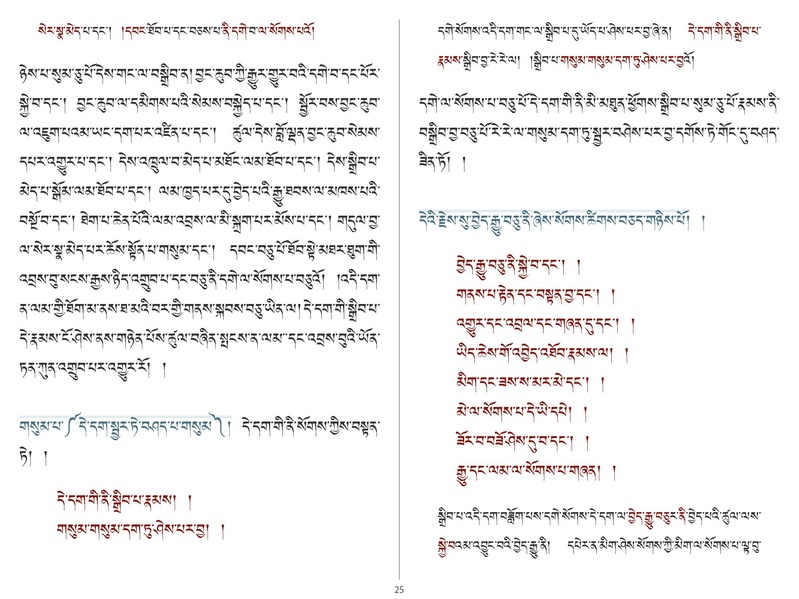 སེར་སྣ་མེད་པ་དང་། །དབང་ཐོབ་པ་དང་བཅས་པ་ནི་དགེ་བ་ལ་སོགས་པའོ།
ཉེས་པ་སུམ་ཅུ་པོ་དེས་གང་ལ་བསྒྲིབ་ན། བྱང་ཆུབ་ཀྱི་རྒྱུར་གྱུར་བའི་དགེ་བ་དང་པོར་
སྐྱེ་བ་དང་། བྱང་ཆུབ་ལ་དམིགས་པའི་སེམས་བསྐྱེད་པ་དང་། སྦྱོར་བས་བྱང་ཆུབ་
ལ་འཇུག་པའམ་ཡང་དག་པར་འཛིན་པ་དང་། ཚུལ་དེས་བློ་ལྡན་བྱང་ཆུབ་སེམས་
དཔར་འགྱུར་པ་དང་། དེས་འཁྲུལ་བ་མེད་པ་མཐོང་ལམ་ཐོབ་པ་དང་། དེས་སྒྲིབ་པ་
མེད་པ་སྒོམ་ལམ་ཐོབ་པ་དང་། ལམ་ཁྱད་པར་དུ་བྱེད་པའི་རྒྱུ་ཐབས་ལ་མཁས་པའི་
བསྔོ་བ་དང་། ཐེག་པ་ཆེན་པོའི་ལམ་འབྲས་ལ་མི་སྐྲག་པར་མོས་པ་དང་། གདུལ་བྱ་
ལ་སེར་སྣ་མེད་པར་ཆོས་སྟོན་པ་གསུམ་དང་། དབང་བཅུ་པོ་ཐོབ་སྟེ་མཐར་ཐུག་གི་
འབྲས་བུ་སངས་རྒྱས་ཉིད་འགྲུབ་པ་དང་བཅུ་ནི་དགེ་ལ་སོགས་པ་བཅུའོ། །འདི་དག་
ན་ལམ་གྱི་ཐོག་མ་ནས་ཐ་མའི་བར་གྱི་གནས་སྐབས་བཅུ་ཡིན་ལ། དེ་དག་གི་སྒྲིབ་པ་
དེ་རྣམས་ངོ་ཤེས་ནས་གཉེན་པོས་ཚུལ་བཞིན་སྤངས་ན་ལམ་དང་འབྲས་བུའི་ཡོན་
ཏན་ཀུན་འགྲུབ་པར་འགྱུར་རོ། །
གསུམ་པ་༼དེ་དག་སྦྱར་ཏེ་བཤད་པ་གསུམ༽། དེ་དག་གི་ནི་སོགས་ཀྱིས་བསྟན་
ཏེ། །
དེ་དག་གི་ནི་སྒྲིབ་པ་རྣམས། །
གསུམ་གསུམ་དག་ཏུ་ཤེས་པར་བྱ། །
དགེ་སོགས་འདི་དག་གང་ལ་སྒྲིབ་པ་དུ་ཡོད་པ་ཤེས་པར་བྱ་ཞེ་ན། དེ་དག་གི་ནི་སྒྲིབ་པ་
རྣམས་སྒྲིབ་བྱ་རེ་རེ་ལ། །སྒྲིབ་པ་གསུམ་གསུམ་དག་ཏུ་ཤེས་པར་བྱའོ།
དགེ་ལ་སོགས་པ་བཅུ་པོ་དེ་དག་གི་ནི་མི་མཐུན་ཕྱོགས་སྒྲིབ་པ་སུམ་ཅུ་པོ་རྣམས་ནི་
བསྒྲིབ་བྱ་བཅུ་པོ་རེ་རེ་ལ་གསུམ་དག་ཏུ་སྦྱར་བཤེས་པར་བྱ་དགོས་ཏེ་གོང་དུ་བཤད་
ཟིན་ཏོ། །
དེའི་རྗེས་སུ་བྱེད་རྒྱུ་བཅུ་ནི་ཞེས་སོགས་ཚིགས་བཅད་གཉིས་པོ། །
བྱེད་རྒྱུ་བཅུ་ནི་སྐྱེ་བ་དང་། །
གནས་པ་རྟེན་དང་བསྟན་བྱ་དང་། །
འགྱུར་དང་འབྲལ་དང་གཞན་དུ་དང་། །
ཡིད་ཆེས་གོ་འབྱེད་འཐོབ་རྣམས་ལ། །
མིག་དང་ཟས་ས་མར་མེ་དང་། །
མེ་ལ་སོགས་པ་དེ་ཡི་དཔེ། །
ཟོར་བ་བཟོ་ཤེས་དུ་བ་དང་། །
རྒྱུ་དང་ལམ་ལ་སོགས་པ་གཞན། །
སྒྲིབ་པ་འདི་དག་བཟློག་པས་དགེ་སོགས་དེ་དག་ལ་བྱེད་རྒྱུ་བཅུར་ནི་བྱེད་པའི་ཚུལ་ལས་
སྐྱེ་བའམ་འབྱུང་བའི་བྱེད་རྒྱུ་ནི། དཔེར་ན་མིག་ཤེས་སོགས་ཀྱི་མིག་ལ་སོགས་པ་ལྟ་བུ་
25